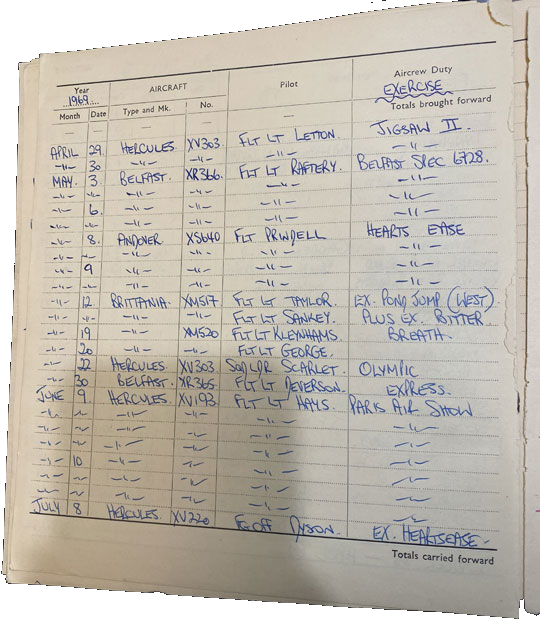 Year AIRCRAFT Pilot Aircrew Duty
1969 EXERCISE
Month Date Type and Mk. No. Totals brought forward
— — — — —
APRIL 29. HERCULES XV303. FLT LT LETTON. JIGSAW II.
-"- 30 -"- -"- -"- -"-
MAY. 3. BELFAST. XR366. FLT LT RAFTERY. BELFAST SPEC 6728.
-"- -"- -"- -"- -"- -"-
-"- 6. -"- -"- -"- -"-
-"- -"- -"- -"- -"- -"-
-"- 8. ANDOVER XS640 FLT PRWDELL HEARTS EASE
-"- -"- -"- -"- -"- -"-
-"- 9 -"- -"- -"- -"-
-"- -"- -"- -"- -"- -"-
-"- 12 BRITTANIA. XM517 FLT LT TAYLOR. EX. POND JUMP (WEST)
-"- -"- -"- -"- FLT LT SANKEY. PLUS EX. BITTER
-"- 19 -"- XM520 FLT LT KLEYNHAMS. BREATH.
-"- 20 -"- -"- FLT LT GEORGE.
-"- 22 HERCULES XV303 SQD LDR SCARLET. OLYMPIC
-"- 30 BELFAST. XR365 FLT LT DEVERSON. EXPRESS.
JUNE 9. HERCULES. XV193 FLT LT HAYS. PARIS AIR SHOW
-"- -"- -"- -"- -"- -"-
-"- -"- -"- -"- -"- -"-
-"- -"- -"- -"- -"- -"-
-"- 10 -"- -"- -"- -"-
-"- -"- -"- -"- -"- -"-
-"- -"- -"- -"- -"- -"-
JULY 8 HERCULES. XV220 DYSON. EX. HEARTSEASE.
Totals carried forward